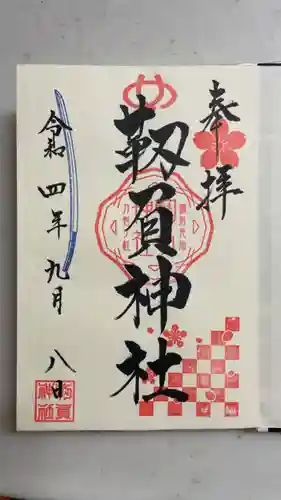 奉拝
靭負神社
令和四年九月八日